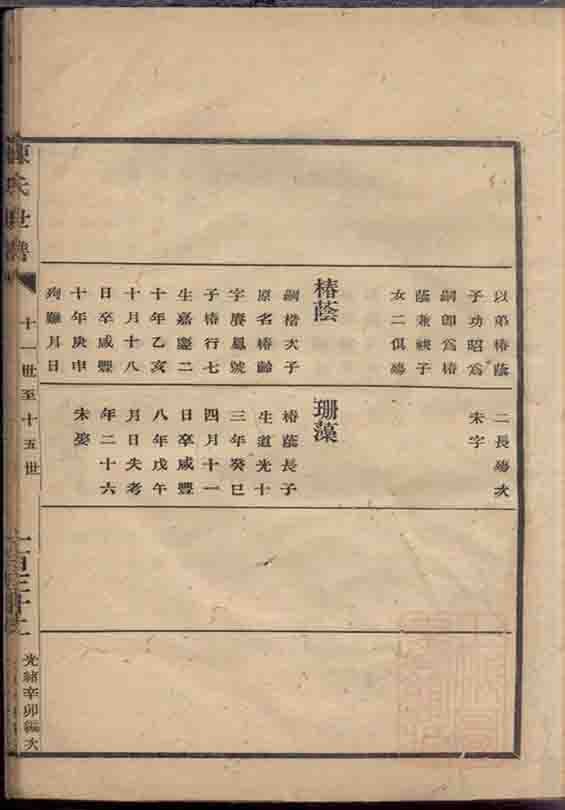 以弟椿蔭
子功昭爲
嗣卽爲椿
蔭兼祧子
女二俱殤
椿蔭
嗣楷次子
原名椿齡
字賡鳳號
子椿行七
生嘉慶二
十年乙亥
十月十八
日卒咸豐
十年庚申
殉難月日
二長殤次
未字
珊藻
椿蔭長子
生道光十
三年癸巳
四月十一
日卒咸豐
八年戊午
月日失考
年二十六
未娶
陳氏世譜
十一世至十五世
光緒辛卯編次